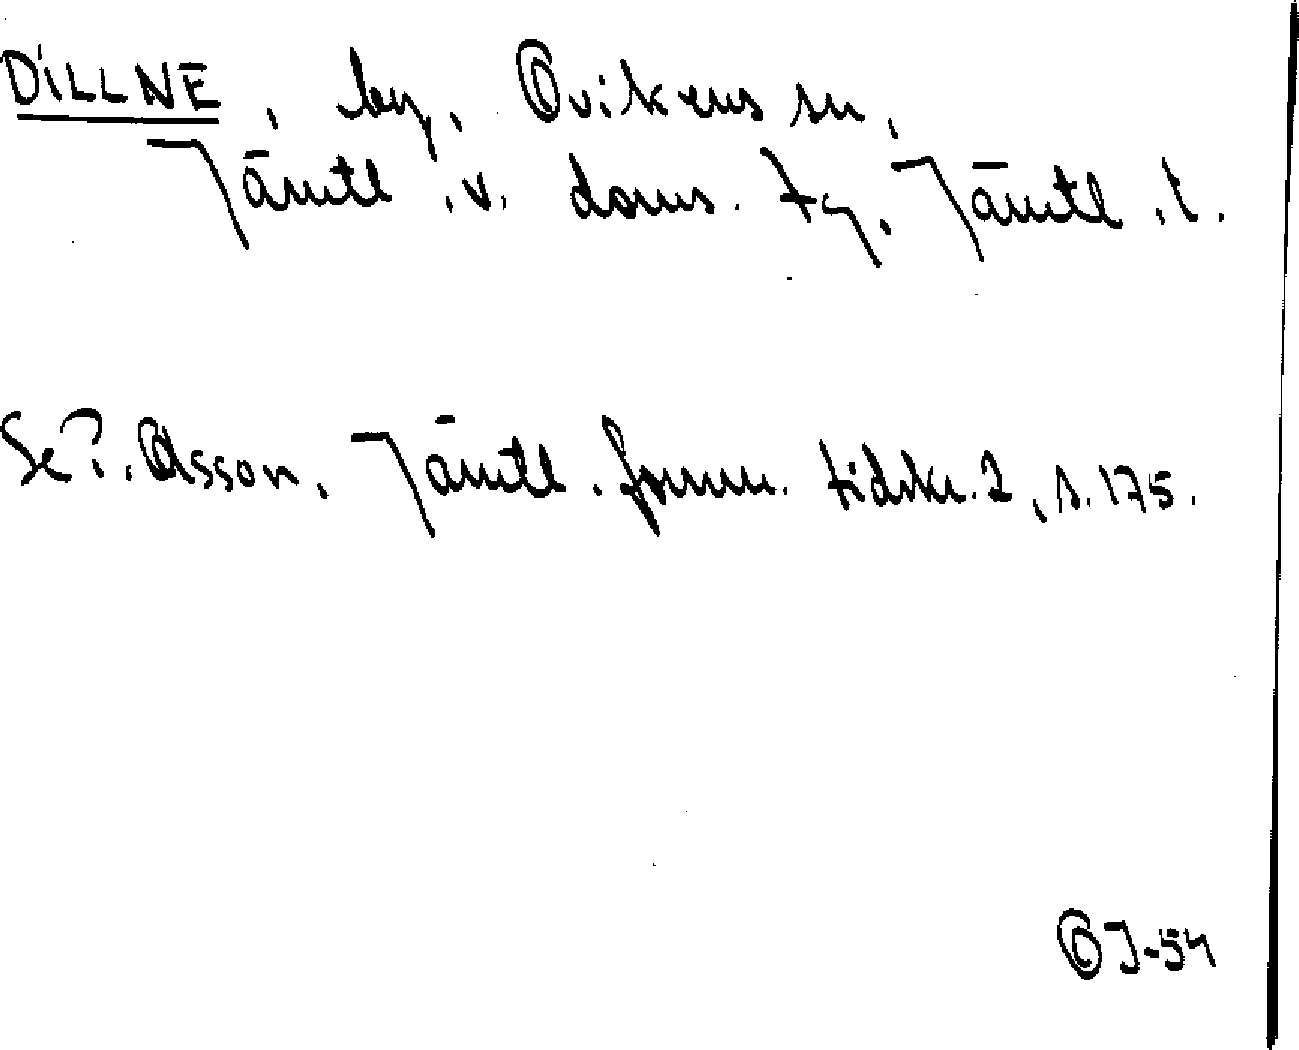 DILLNE, by, Ovikens sn,
Jämtl. v. doms. tg, Jämtl. l.
Se P. Olsson, Jämtl. fornm. tidskr. 2, s. 175.
OJ-54